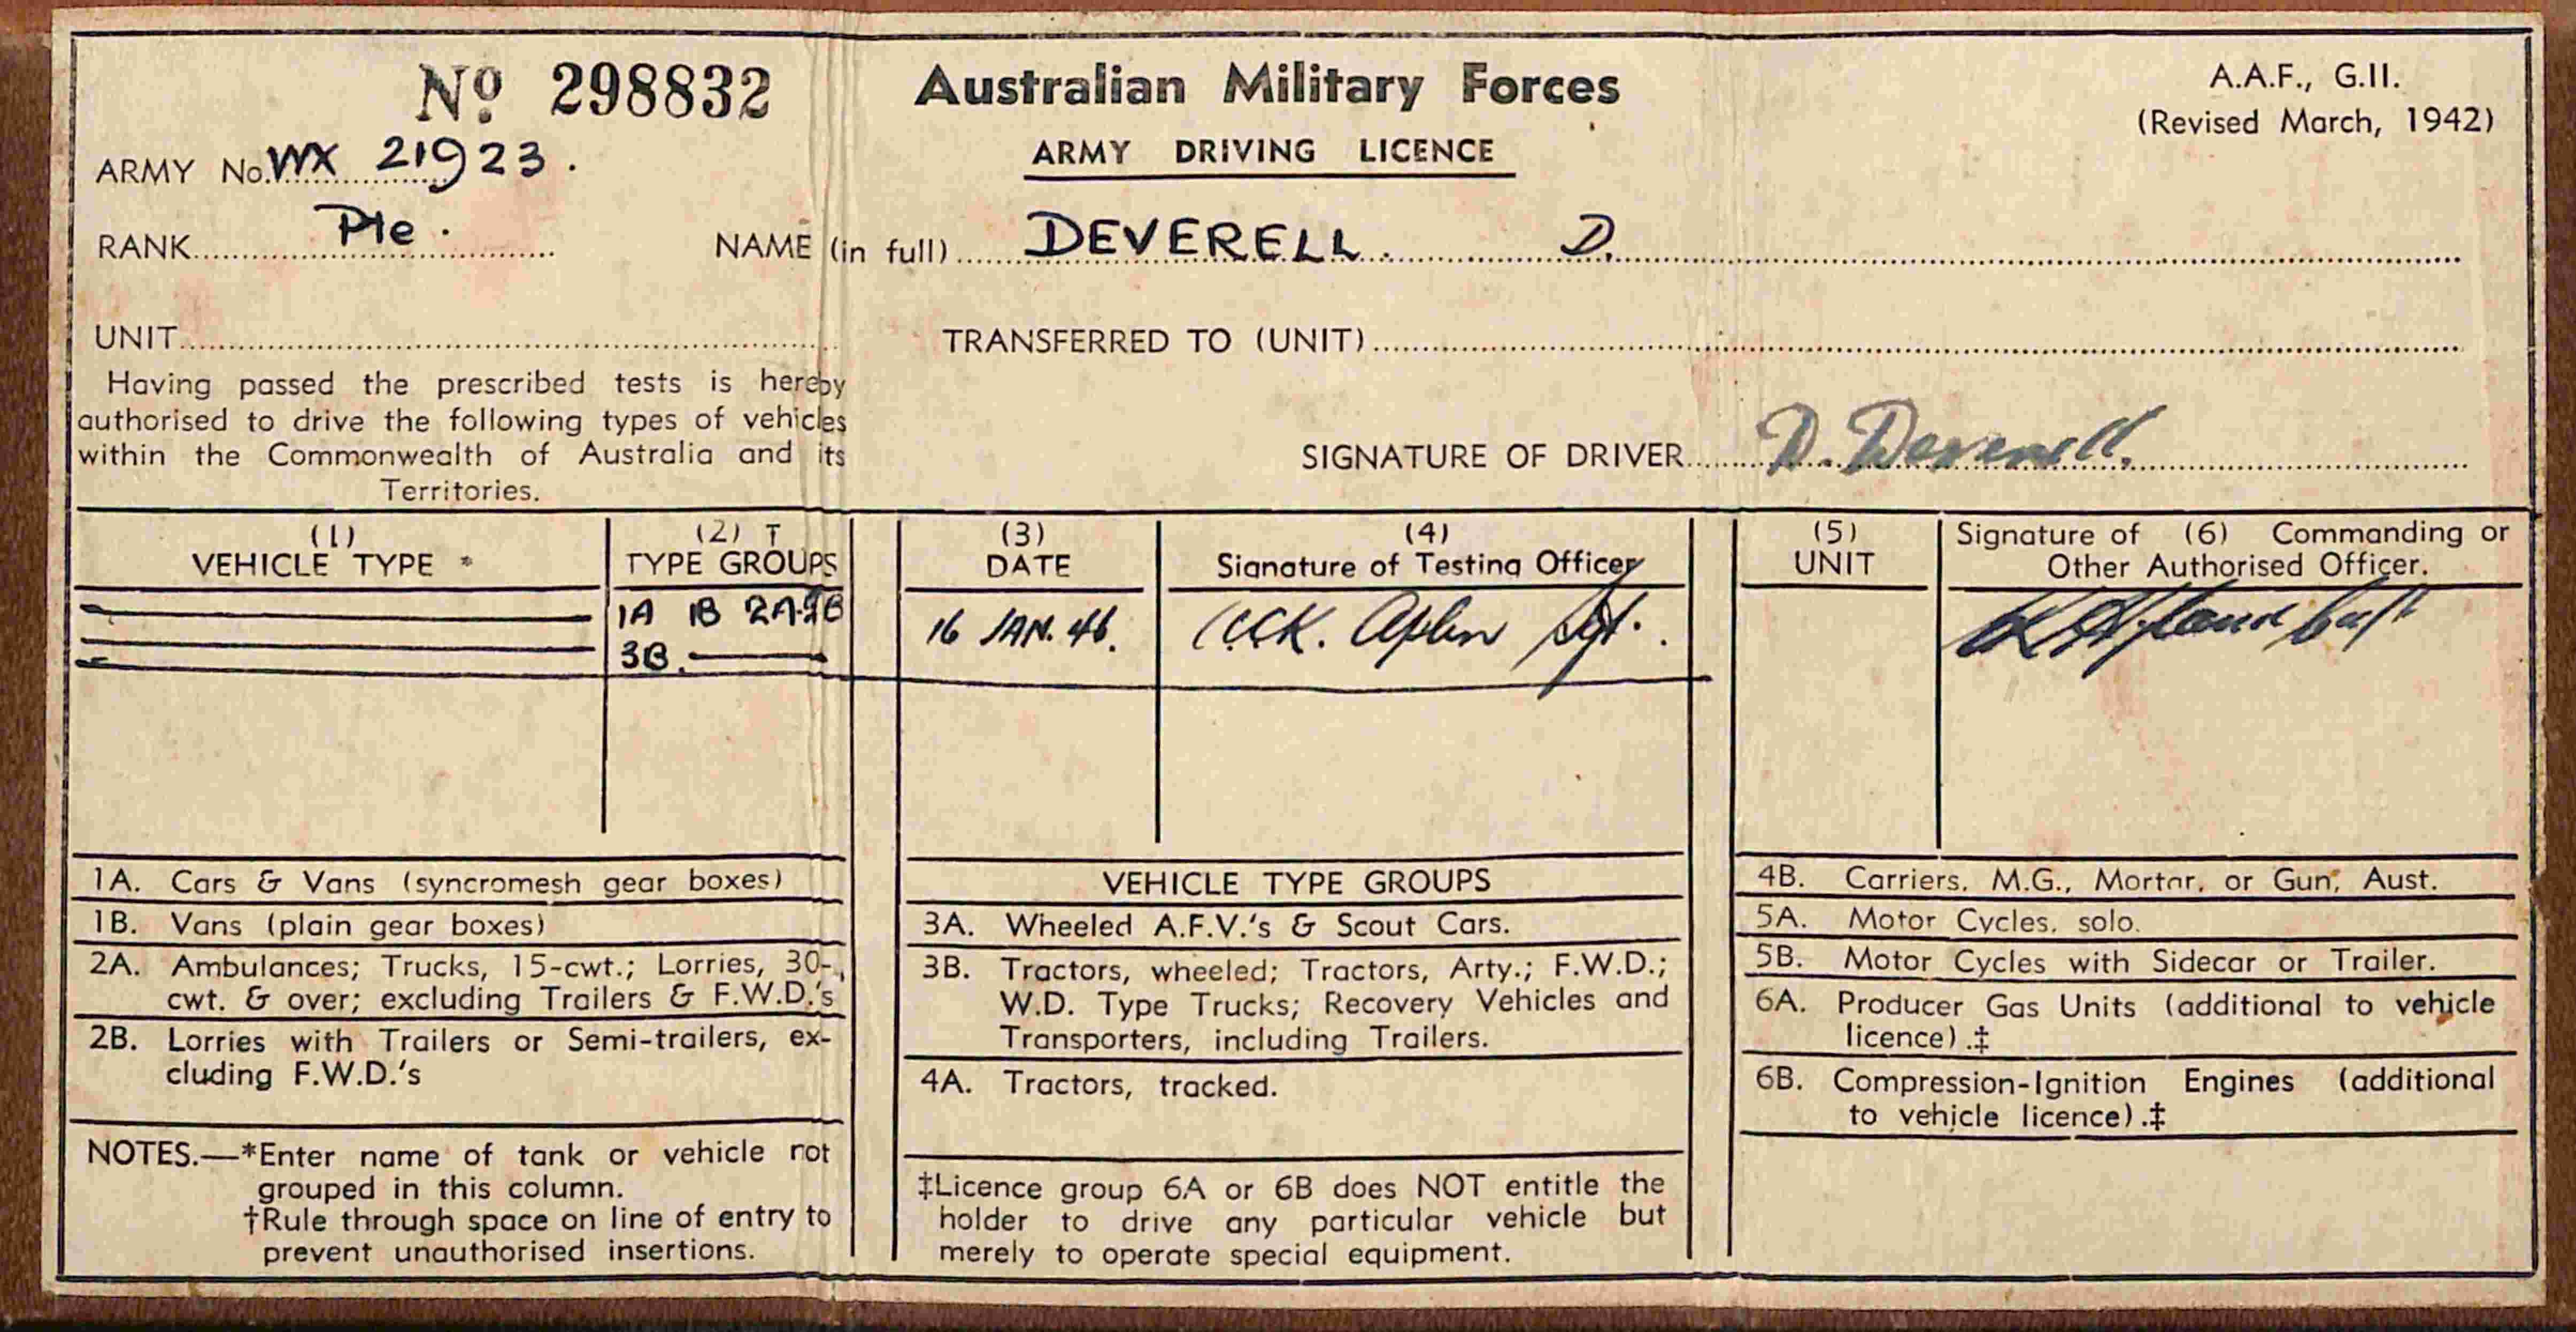 No 298832
Australian Military Forces
A.A.F., G.II.
(Revised March, 1942)
ARMY DRIVING LICENCE
ARMY No. WX 21923.
RANK Pte. NAME (in full) DEVERELL. D.
UNIT TRANSFERRED TO (UNIT)
Having passed the prescribed tests is hereby
authorised to drive the following types of vehicles
within the Commonwealth of Australia and its
Territories.
SIGNATURE OF DRIVER D. Deverell.
(1)
VEHICLE TYPE *
(2) †
TYPE GROUPS
1A 1B 2A 2B
3B.
(3)
DATE
16 JAN. 46.
(4)
Signature of Testing Officer
Sgt.
(5)
UNIT
Signature of (6) Commanding or
Other Authorised Officer.
Capt
1A. Cars & Vans (syncromesh gear boxes)
1B. Vans (plain gear boxes)
2A. Ambulances; Trucks, 15-cwt.; Lorries, 30-
cwt. & over; excluding Trailers & F.W.D.'s
2B. Lorries with Trailers or Semi-trailers, ex-
cluding F.W.D.'s
NOTES.—*Enter name of tank or vehicle not
grouped in this column.
†Rule through space on line of entry to
prevent unauthorised insertions.
VEHICLE TYPE GROUPS
3A. Wheeled A.F.V.'s & Scout Cars.
3B. Tractors, wheeled; Tractors, Arty.; F.W.D.;
W.D. Type Trucks; Recovery Vehicles and
Transporters, including Trailers.
4A. Tractors, tracked.
‡Licence group 6A or 6B does NOT entitle the
holder to drive any particular vehicle but
merely to operate special equipment.
4B. Carriers, M.G., Mortar, or Gun, Aust.
5A. Motor Cycles, solo.
5B. Motor Cycles with Sidecar or Trailer.
6A. Producer Gas Units (additional to vehicle
licence).‡
6B. Compression-Ignition Engines (additional
to vehicle licence).‡